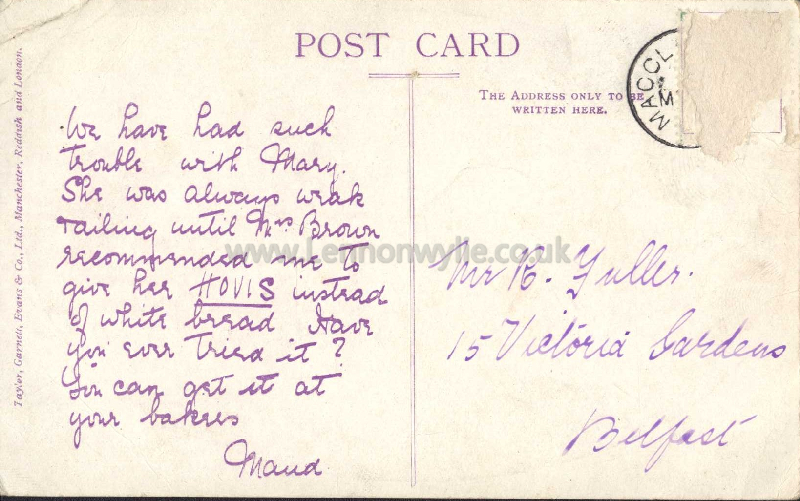 POST CARD
THE ADDRESS ONLY TO BE
WRITTEN HERE.
MACCL
M
Taylor, Garnett, Evans & Co., Ltd., Manchester, Reddish and London.
We have had such
trouble with Mary.
She was always weak
railing until Mrs Brown
recommended me to
give her HOVIS instead
of white bread Have
you ever tried it?
You can get it at
your bakers
Maud
Mr R. Fuller.
15 Victoria Gardens
Belfast
www.Lennonwylie.co.uk